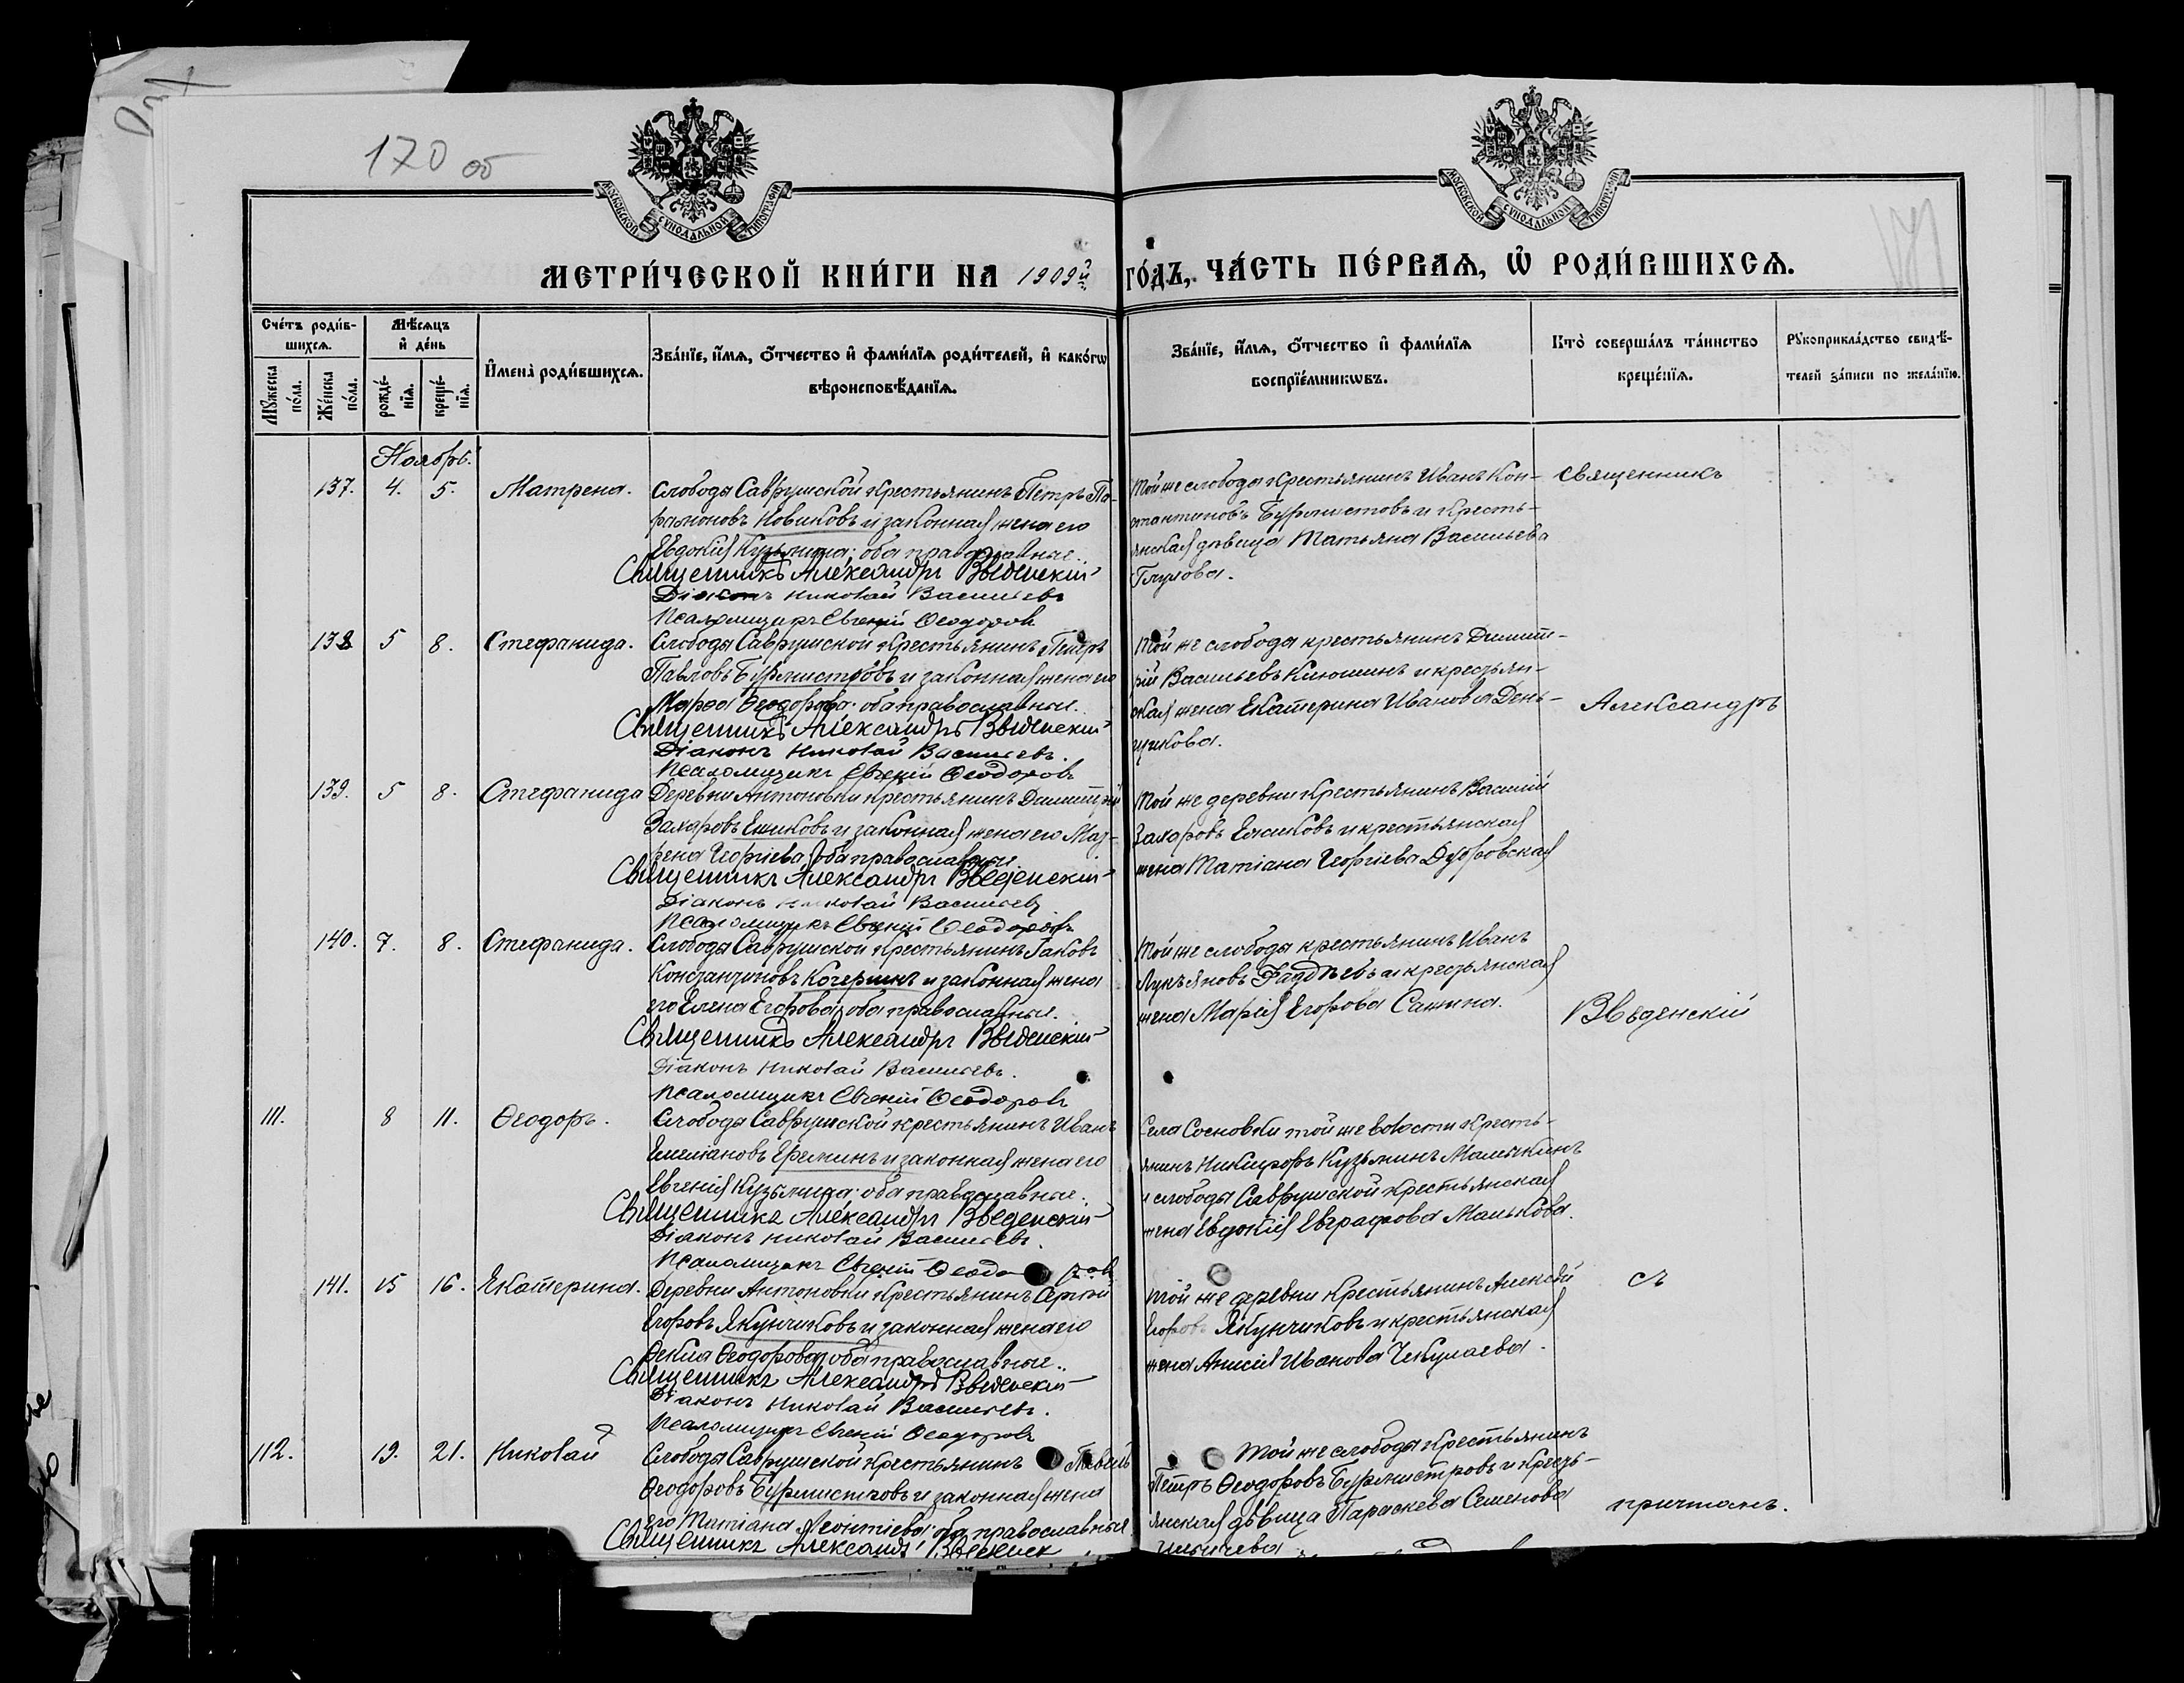 170 об
171
МОСКОВСКОЙ СѴНОДАЛЬНОЙ ТИПОГРАФІИ
МОСКОВСКОЙ СѴНОДАЛЬНОЙ ТИПОГРАФІИ
МЕТРИ́ЧЕСКОЙ КНИ́ГИ НА 1909й ГО́ДЪ, ЧА́СТЬ ПЕ́РВАѦ, Ѡ҆ РОДИ́ВШИХСѦ.
Сче́тъ роди́в-
шихсѧ.
Мꙋ́жеска по́ла.
Же́нска по́ла.
Мѣ́сѧцъ
и҆ де́нь
рожде́-
нїѧ.
креще́-
нїѧ.
И҆мена̀ роди́вшихсѧ.
Зва́нїе, и҆́мѧ, ѻ҆́тчество и҆ фами́лїѧ роди́телей, и҆ како́гѡ
вѣроисповѣ́данїѧ.
Зва́нїе, и҆́мѧ, ѻ҆́тчество и҆ фами́лїѧ
воспрїе́мникѡвъ.
Кто̀ соверша́лъ та́инство
креще́нїѧ.
Рꙋкоприкла́дство свидѣ́-
телей за́писи по жела́нїю.
Ноябрь.
137. 4. 5. Матрена. Слободы Саврушской крестьянинъ Петръ Па-
рамоновъ Новиковъ и законная жена его
Евдокія Кузьмина; оба православные.
Священникъ Александръ Введенскій
Діаконъ Николай Васильевъ
Псаломщикъ Евгеній Ѳеодоровъ
Той же слободы крестьянинъ Иванъ Кон-
стантиновъ Бурмистовъ и кресть-
янская дѣвица Татьяна Васильева
Глухова.
священникъ
138 5 8. Стефанида. Слободы Саврушской крестьянинъ Петръ
Павловъ Бурмистровъ и законная жена его
Марѳа Ѳеодорова; оба православные.
Священникъ Александръ Введенскій
Діаконъ Николай Васильевъ.
Псаломщикъ Евгеній Ѳеодоровъ
Той же слободы крестьянинъ Димит-
рій Васильевъ Клюшинъ и крестьян-
ская жена Екатерина Иванова День-
щикова.
Александръ
139. 5 8. Стефанида Деревни Антоновки крестьянинъ Димитрій
Захаровъ Ежиковъ и законная жена его Мат-
рена Георгіева; оба православные.
Священникъ Александръ Введенскій
Діаконъ Николай Васильевъ
Псаломщикъ Евгеній Ѳеодоровъ
Той же деревни крестьянинъ Василій
Захаровъ Ежиковъ и крестьянская
жена Татіана Георгіева Дубровская
140. 7. 8. Стефанида. Слободы Саврушской крестьянинъ Іаковъ
Константиновъ Кочергинъ и законная жена
его Елена Егорова; оба православные.
Священникъ Александръ Введенскій
Діаконъ Николай Васильевъ.
Псаломщикъ Евгеній Ѳеодоровъ
Той же слободы крестьянинъ Иванъ
Лукъяновъ Фаддѣевъ и крестьянская
жена Марія Егорова Сажина.
Введенскій
111. 8 11. Ѳеодоръ. Слободы Саврушской крестьянинъ Иванъ
Емеліановъ Ереминъ и законная жена его
Евгенія Кузьмина; оба православные.
Священникъ Александръ Введенскій
Діаконъ Николай Васильевъ.
Псаломщикъ Евгеній Ѳеодоровъ
Села Сосновки той же волости кресть-
янинъ Никифоръ Кузьминъ Малышкинъ
и слободы Саврушской крестьянская
жена Евдокія Евграфова Малькова.
141. 15 16. Екатерина. Деревни Антоновки крестьянинъ Сергѣй
Егоровъ Якунчиковъ и законная жена его
Ѳекла Ѳеодорова; оба православные.
Священникъ Александръ Введенскій
Діаконъ Николай Васильевъ.
Псаломщикъ Евгеній Ѳеодоровъ
Той же деревни крестьянинъ Алексѣй
Егоровъ Якунчиковъ и крестьянская
жена Анисія Иванова Чекулаева.
съ
112. 19. 21. Николай Слободы Саврушской крестьянинъ Павелъ
Ѳеодоровъ Бурмистровъ и законная жена
его Татіана Леонтіева; оба православные
Священникъ Александръ Введенск
Той же слободы крестьянинъ
Петръ Ѳеодоровъ Бурмистровъ и кресть-
янская дѣвица Параскева Семенова
причтомъ.